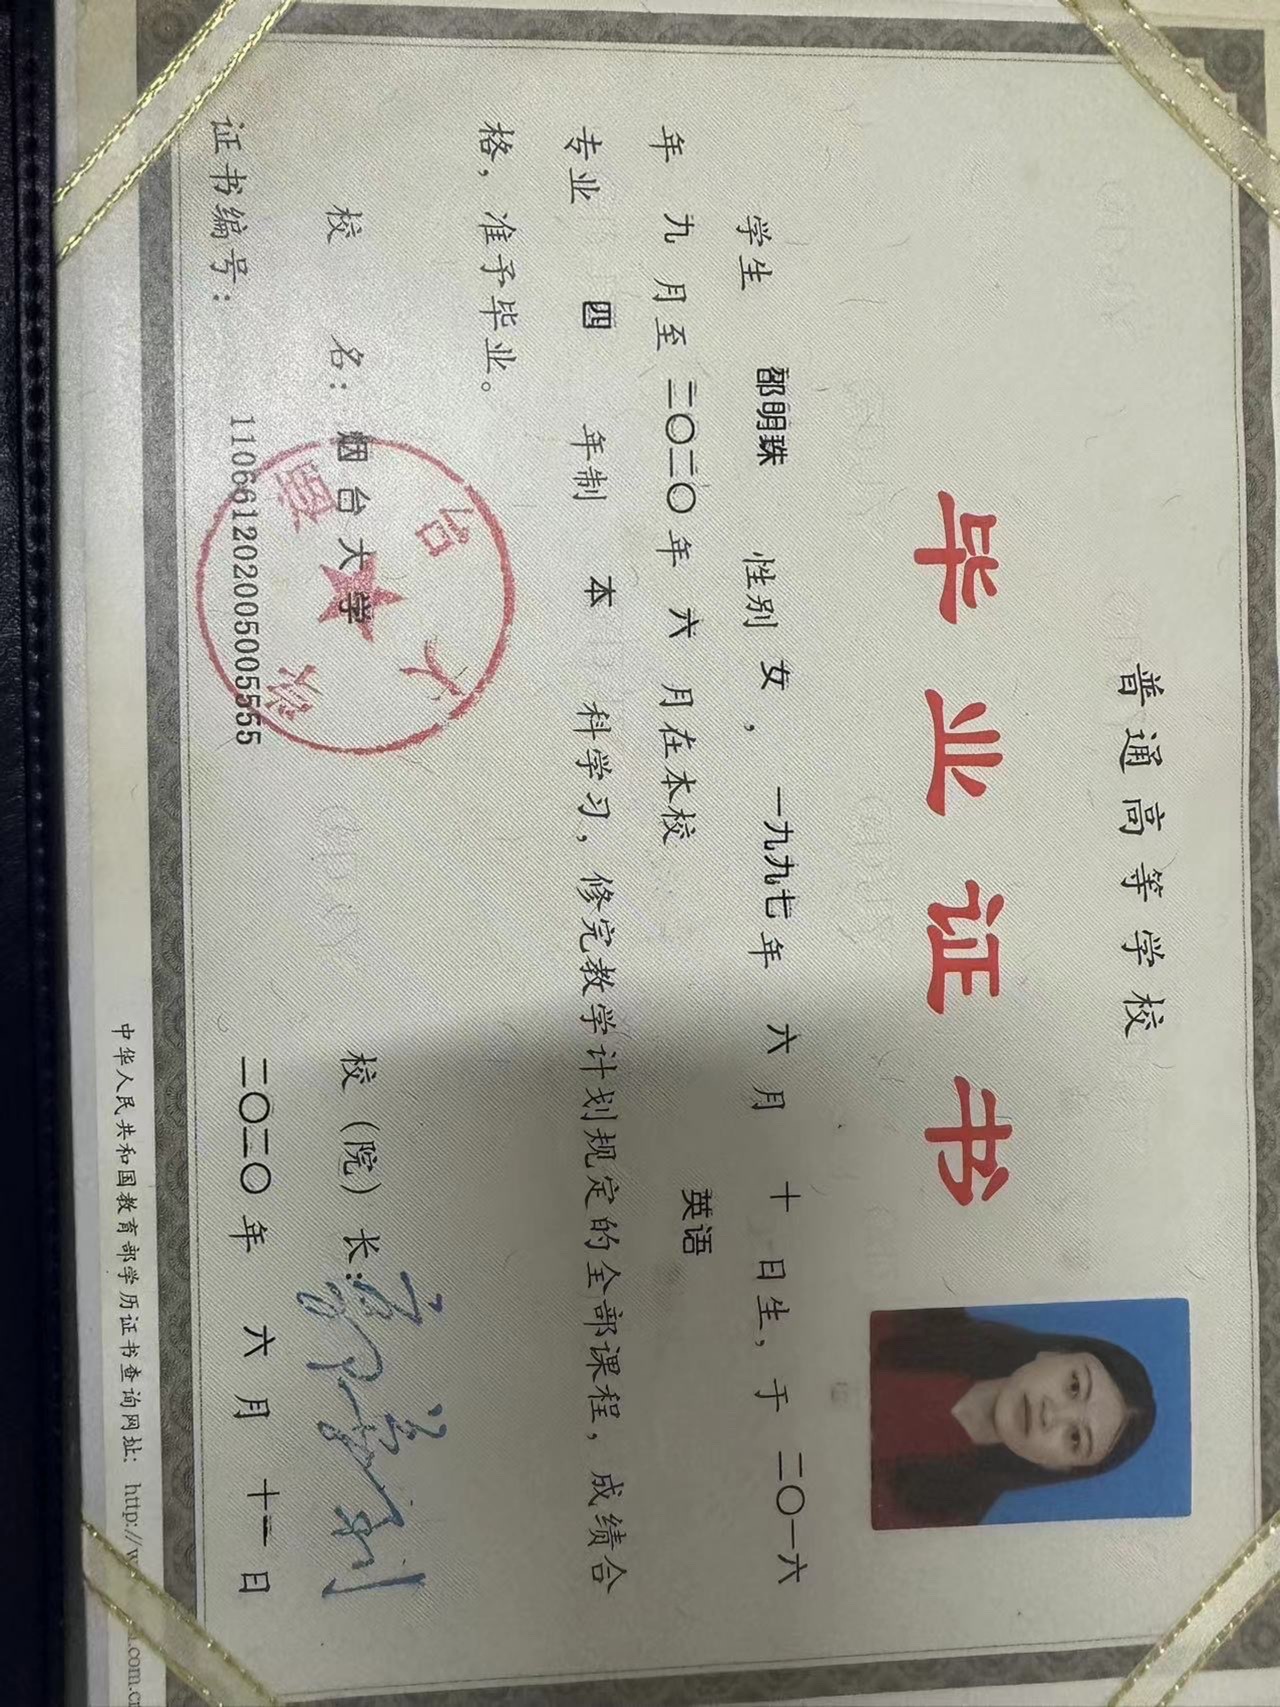 普通高等学校
毕业证书
学生 邵明珠 性别 女， 一九九七 年 六 月 十 日生，于 二〇一六
年 九 月至 二〇二〇 年 六 月在本校 英语
专业 四 年制 本 科学习，修完教学计划规定的全部课程，成绩合
格，准予毕业。
校 名：烟台大学 校（院）长：
证书编号：110661202005005555 二〇二〇 年 六 月 十一 日
中华人民共和国教育部学历证书查询网址：http://w
.com.cn